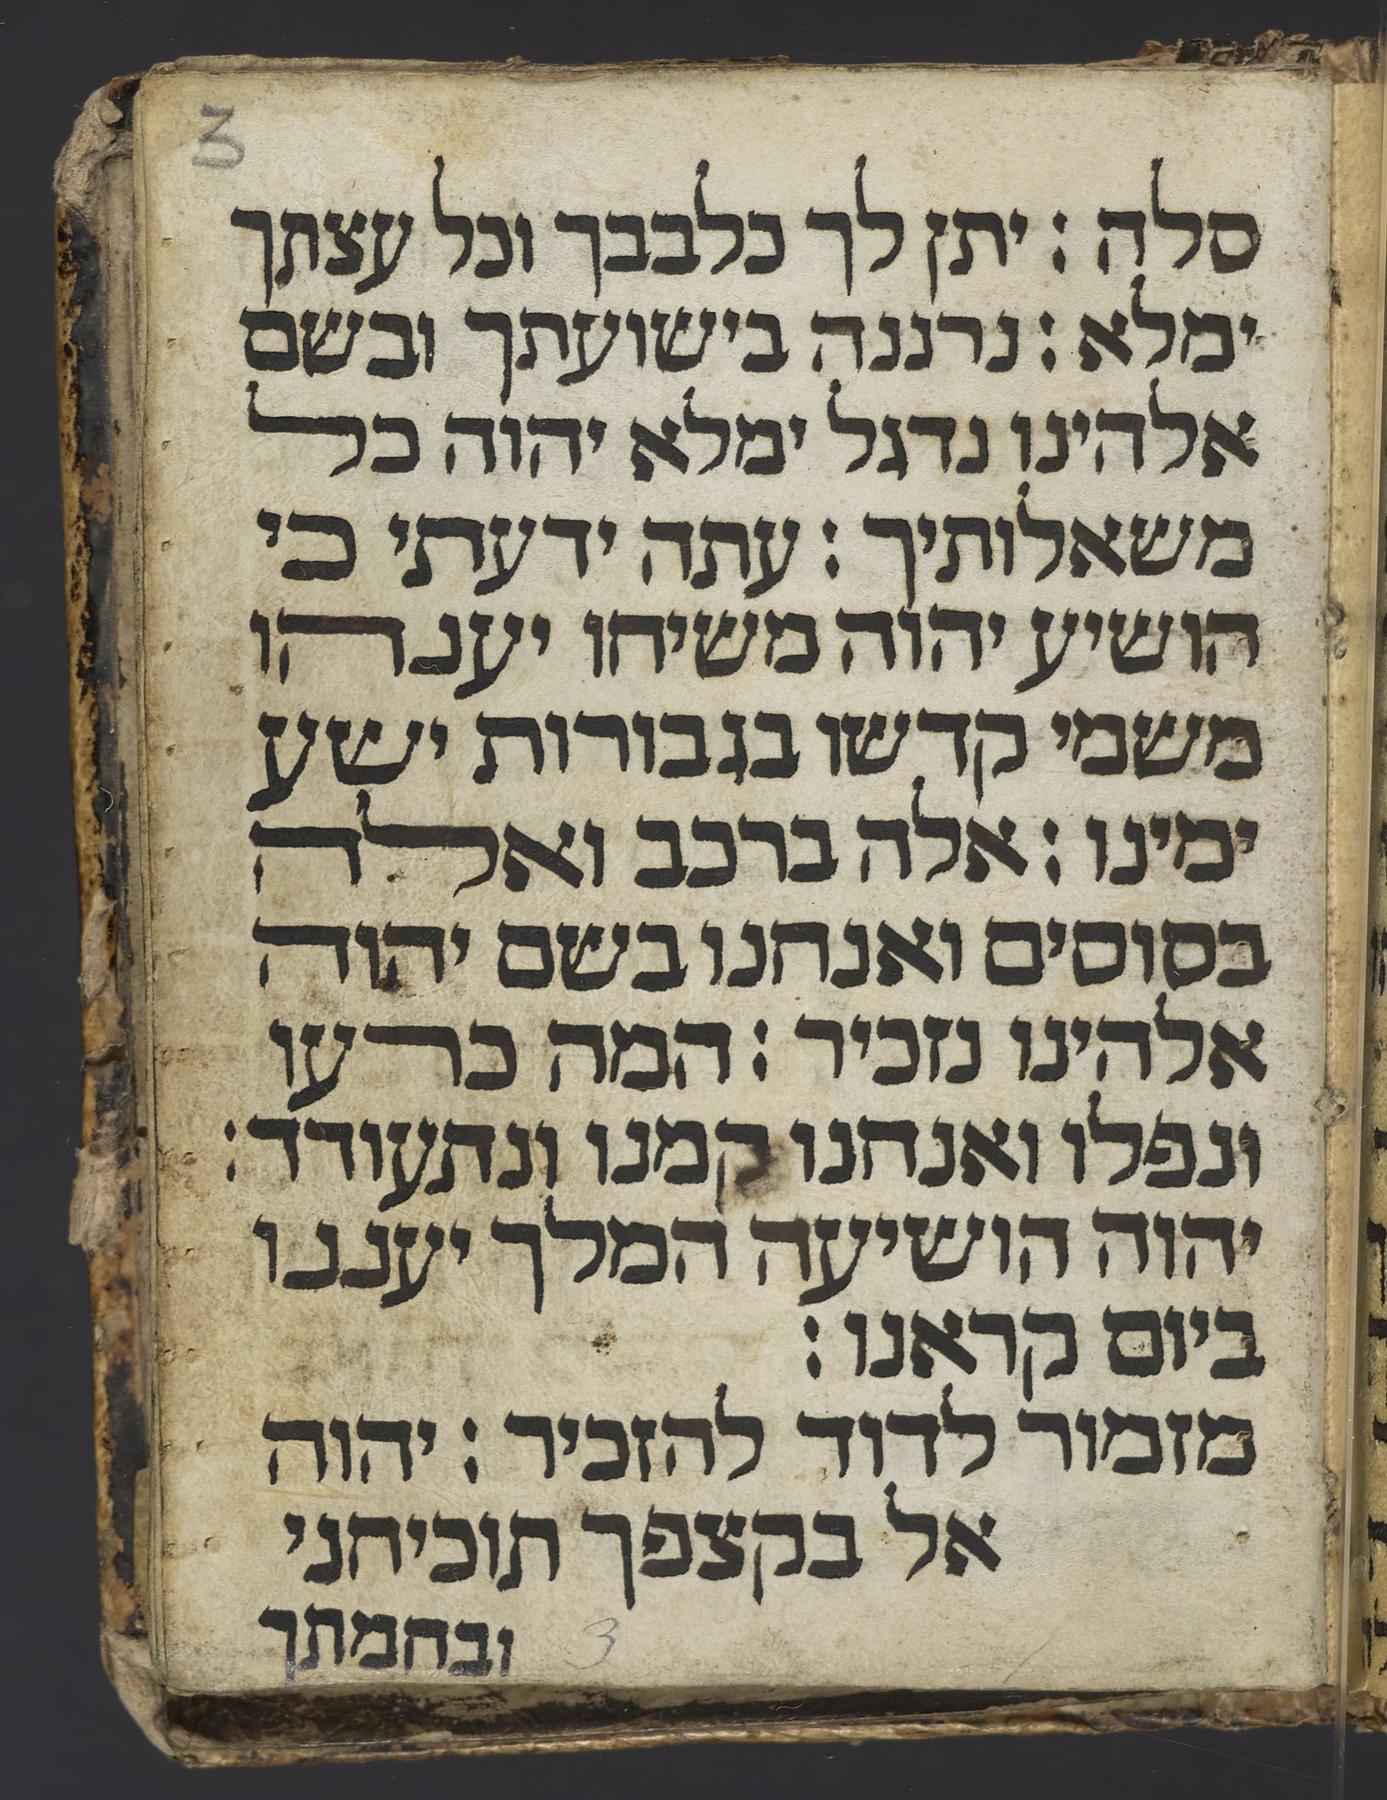 3
סלה : יתן לך כלבבך וכל עצתך
ימלא : נרננה בישועתך ובשם
אלהינו נדגל ימלא יהוה כל
משאלותיך : עתה ידעתי כי
הושיע יהוה משיחו יענהו
משמי קדשו בגבורות ישע
ימינו : אלה ברכב ואלה
בסוסים ואנחנו בשם יהוה
אלהינו נזכיר : המה כרעו
ונפלו ואנחנו קמנו ונתעודד :
יהוה הושיעה המלך יעננו
ביום קראנו :
מזמור לדוד להזכיר : יהוה
אל בקצפך תוכיחני
ובחמתך
3